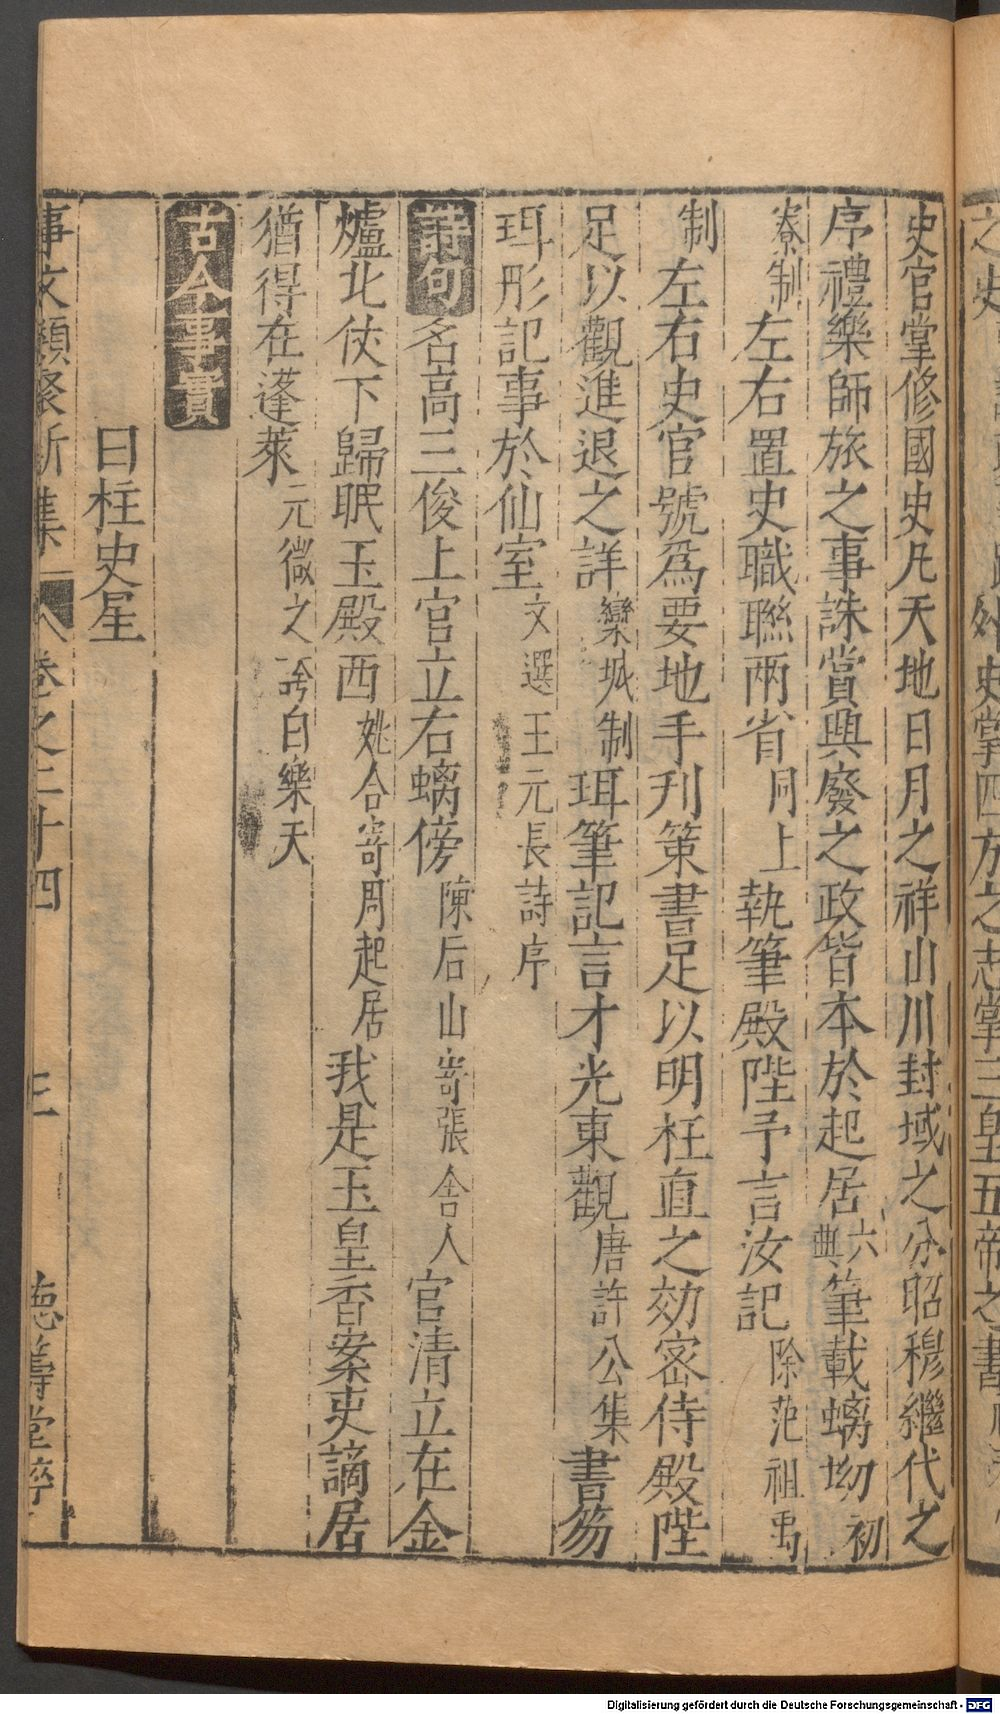 史官掌修國史凡天地日月之祥山川封域之分昭穆繼代之
序禮樂師旅之事誅賞興廢之政皆本於起居六典筆載螭坳初
寮制左右置史職聯兩省同上執筆殿陛予言汝記除范祖禹
制左右史官號爲要地手刋策書足以明枉直之効密侍殿陛
足以觀進退之詳欒城制珥筆記言才光東觀唐許公集書笏
珥彤記事於仙室文選王元長詩序
詩句名高三俊上官立右螭傍陳后山寄張舍人官清立在金
爐北仗下歸眠玉殿西姚合寄周起居我是玉皇香案吏謫居
猶得在蓬萊元微之誇白樂天
古今事實
曰柱史星
事文類聚新集 卷之二十四 三 德壽堂梓
之史 外史掌四方之志掌三皇五帝之書
Digitalisierung gefördert durch die Deutsche Forschungsgemeinschaft - DFG